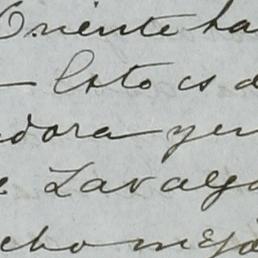 Oriente ha
- Esto es d
dora y en
e Lavalg
cho mejo